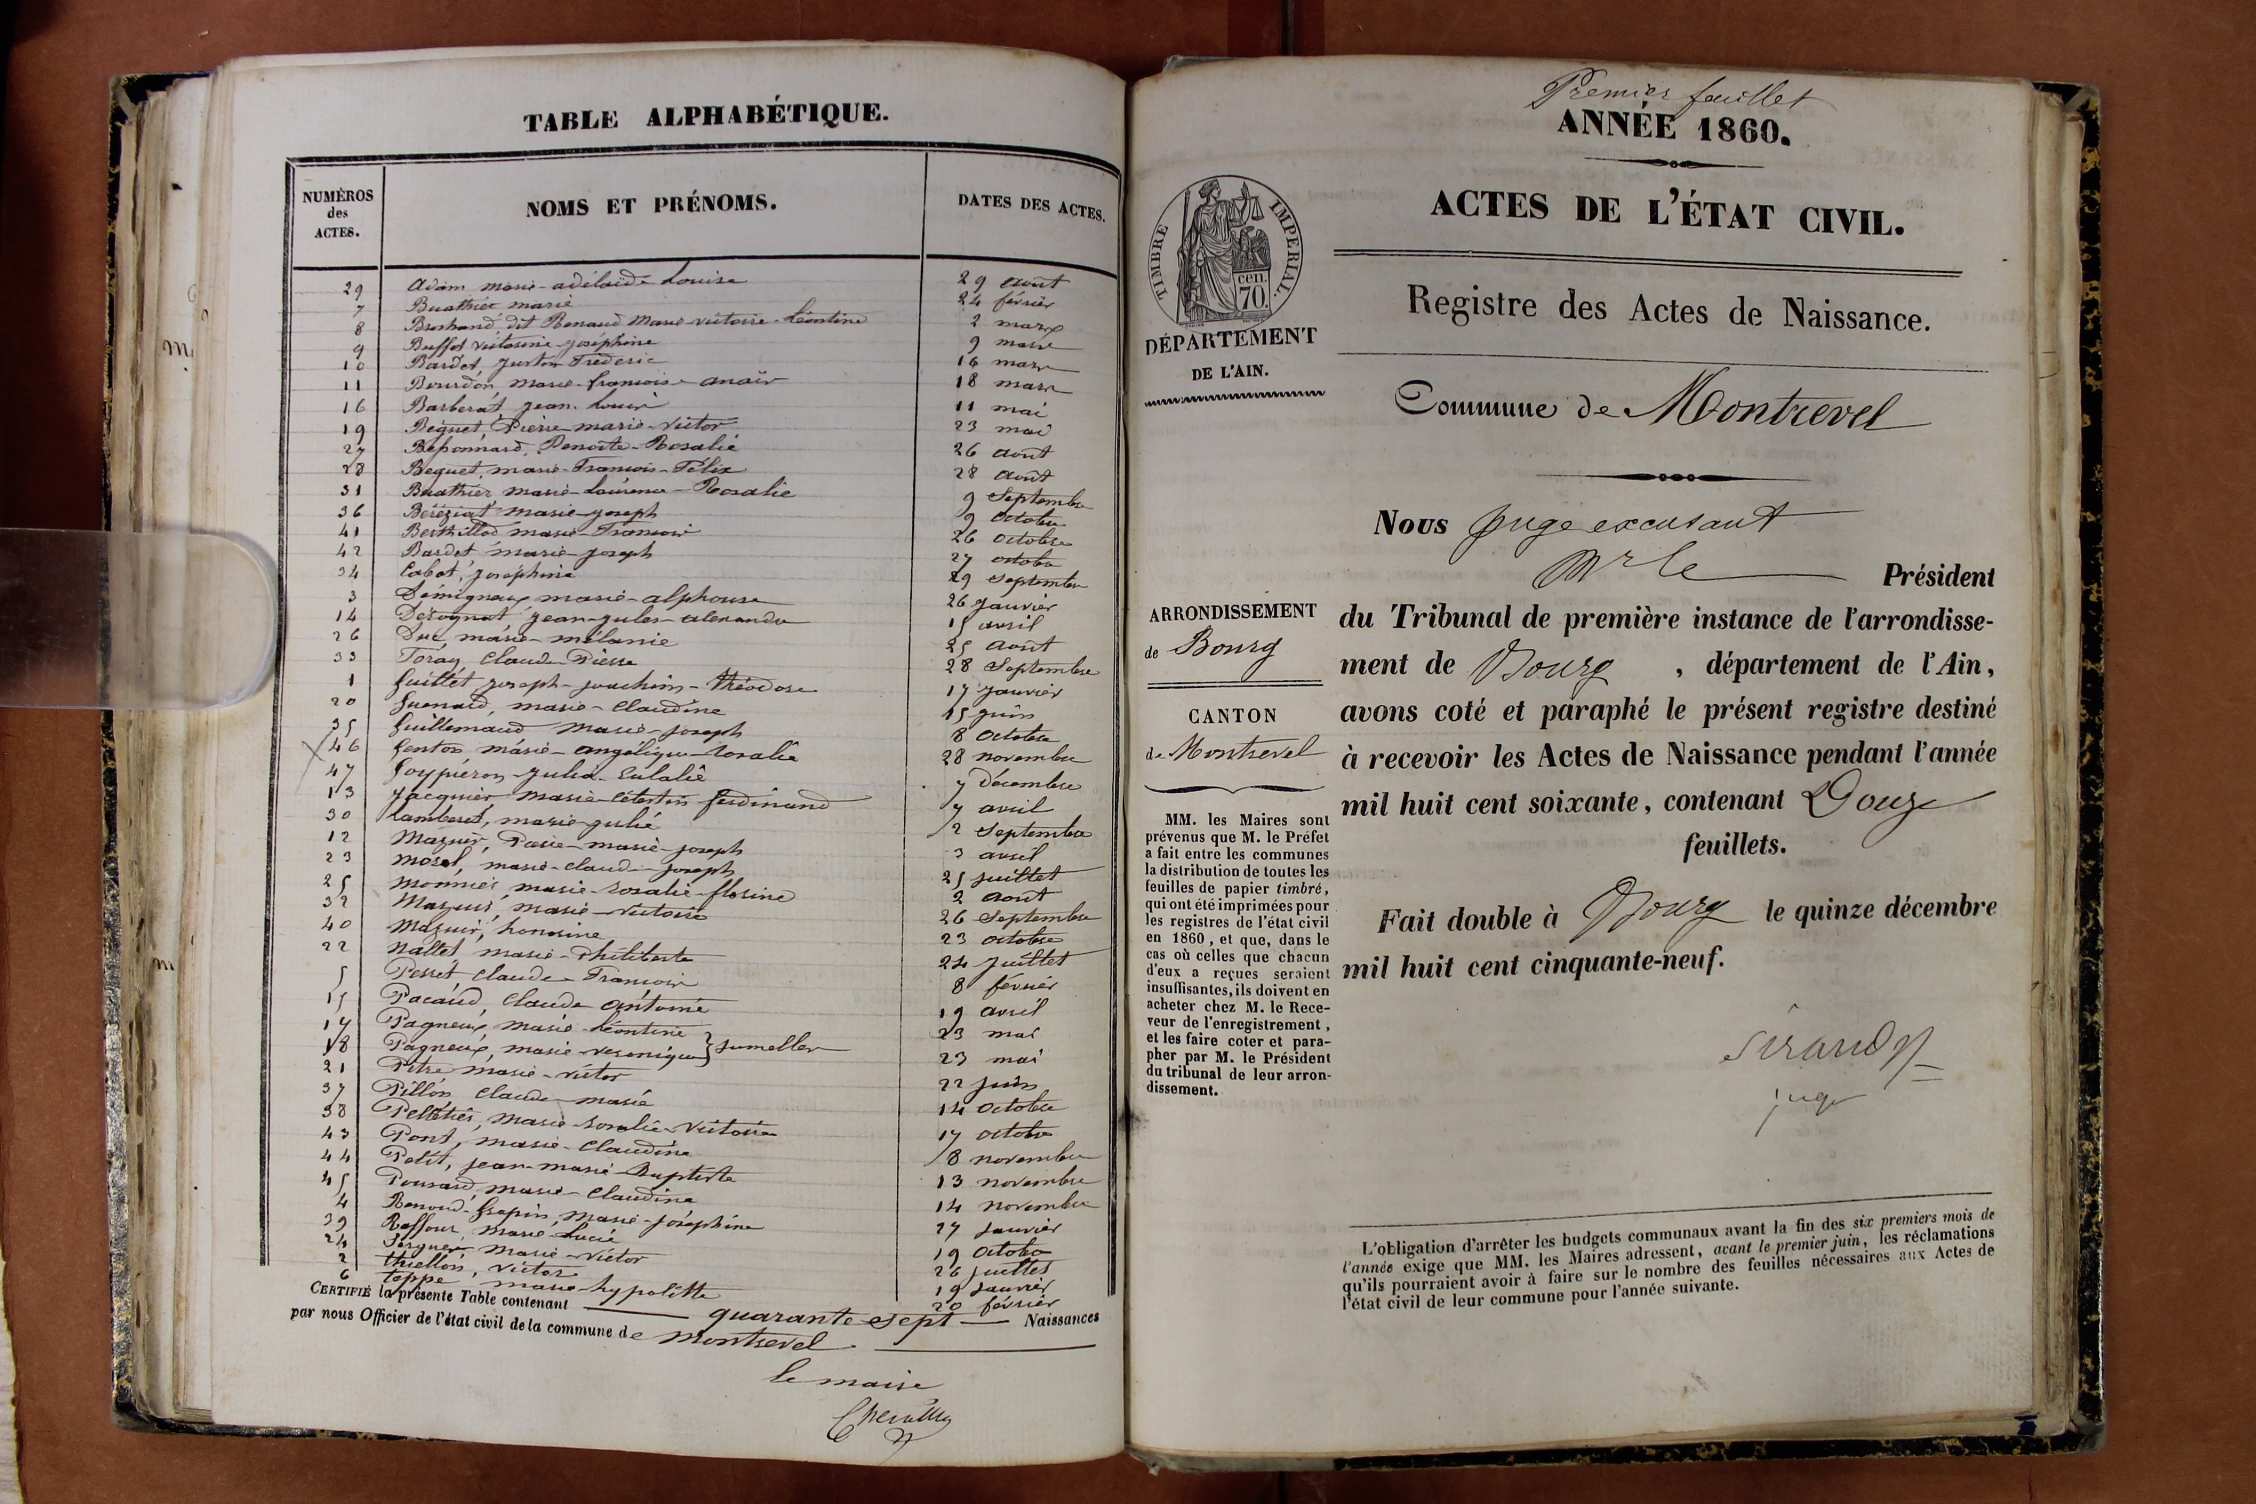 TABLE ALPHABÉTIQUE.
NUMÉROS des ACTES.
NOMS ET PRÉNOMS.
DATES DES ACTES.
29 Adam marie-adélaïde Louise 29 août
7 Buathier marie 24 février
8 dit Renaud Marie victoire Léontine 2 mars
9 Buffet victorine josephine 9 mars
10 Bardet, Justin Frédéric 16 mars
11 Bourdon marie-françoise anaïs 18 mars
16 Barberat jean Louis 11 mai
19 Bequet, Pierre-marie-victor 23 mai
27 Benoite-Rosalie 26 août
28 Bequet, marie-François-Félix 28 août
31 Buathier marie-Laurence-Rosalie 9 Septembre
36 Béréziat marie-joseph 9 octobre
41 Berthillod marie-François 26 octobre
42 Bardet marie-joseph 27 octobre
34 Cabot, josephine 29 Septembre
3 marie-alphonse 26 janvier
14 jean-jules-alexandre 15 avril
26 Duc marie-mélanie 25 août
33 Foray Claude Pierre 28 Septembre
1 Guillet joseph-joachim-théodore 17 janvier
20 Guenard, marie-Claudine 15 juin
35 Guillemaud marie-joseph 8 octobre
46 Genton marie-angélique-rosalie 28 novembre
47 Goypieron julie-Eulalie 7 décembre
13 Jacquier marie-Célestin ferdinand 7 avril
30 Lamberet, marie-julie 2 Septembre
12 Mazuir, marie-joseph 3 avril
23 Morel, marie-claude-joseph 25 juillet
25 Monnier marie-rosalie-florine 2 août
32 Mazuir marie-victoire 26 Septembre
40 Mazuir, honorine 23 octobre
22 Nallet marie-Philiberte 24 juillet
5 Perret Claude-François 8 février
15 Pacaud, Claude antoine 19 avril
17 Pagneux marie Léontine 23 mai
18 Pagneux, marie-veronique } jumelles 23 mai
21 Pitre marie-victor 22 juin
37 Pillon Claude-marie 14 octobre
38 Pelletier, Marie-rosalie-victoire 17 octobre
43 Pont, marie-Claudine 8 novembre
44 Petit, jean-marie-Baptiste 13 novembre
45 Ponsard marie-Claudine 14 novembre
4 Renoud-Grapin Marie-joséphine 27 janvier
39 Raffour, Marie Lucie 19 octobre
24 marie-victor 26 juillet
2 thiellon, victor 19 janvier
6 teppe marie-hypolitte 20 février
CERTIFIÉ la présente Table contenant quarante sept Naissances
par nous Officier de l'état civil de la commune de Montrevel
Le maire
Premier feuillet
ANNÉE 1860.
ACTES DE L'ÉTAT CIVIL.
TIMBRE IMPERIAL.
cen. 70.
DÉPARTEMENT
DE L'AIN.
Registre des Actes de Naissance.
Commune de Montrevel
Nous Juge excusant
Mr le Président
du Tribunal de première instance de l'arrondisse-
ment de Bourg, département de l'Ain,
avons coté et paraphé le présent registre destiné
à recevoir les Actes de Naissance pendant l'année
mil huit cent soixante, contenant Douze
feuillets.
Fait double à Bourg le quinze décembre
mil huit cent cinquante-neuf.
Sirand
juge
ARRONDISSEMENT
de Bourg
CANTON
de Montrevel
MM. les Maires sont
prévenus que M. le Préfet
a fait entre les communes
la distribution de toutes les
feuilles de papier timbré,
qui ont été imprimées pour
les registres de l'état civil
en 1860, et que, dans le
cas où celles que chacun
d'eux a reçues seraient
insuffisantes, ils doivent en
acheter chez M. le Rece-
veur de l'enregistrement,
et les faire coter et para-
pher par M. le Président
du tribunal de leur arron-
dissement.
L'obligation d'arrêter les budgets communaux avant la fin des six premiers mois de
l'année exige que MM. les Maires adressent, avant le premier juin, les réclamations
qu'ils pourraient avoir à faire sur le nombre des feuilles nécessaires aux Actes de
l'état civil de leur commune pour l'année suivante.